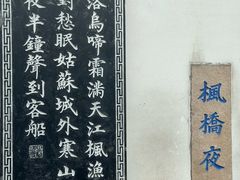 楓橋夜
落烏啼霜滿天江楓漁
對愁眠姑蘇城外寒山
夜半鐘聲到客船